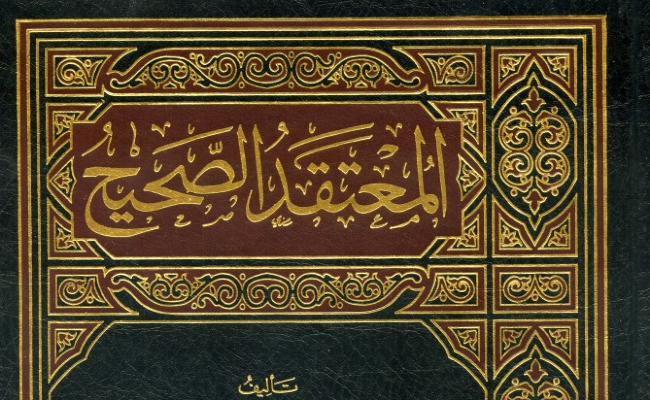 المُعْتَقَدُ الصَّحِيحُ
تَألِيفُ